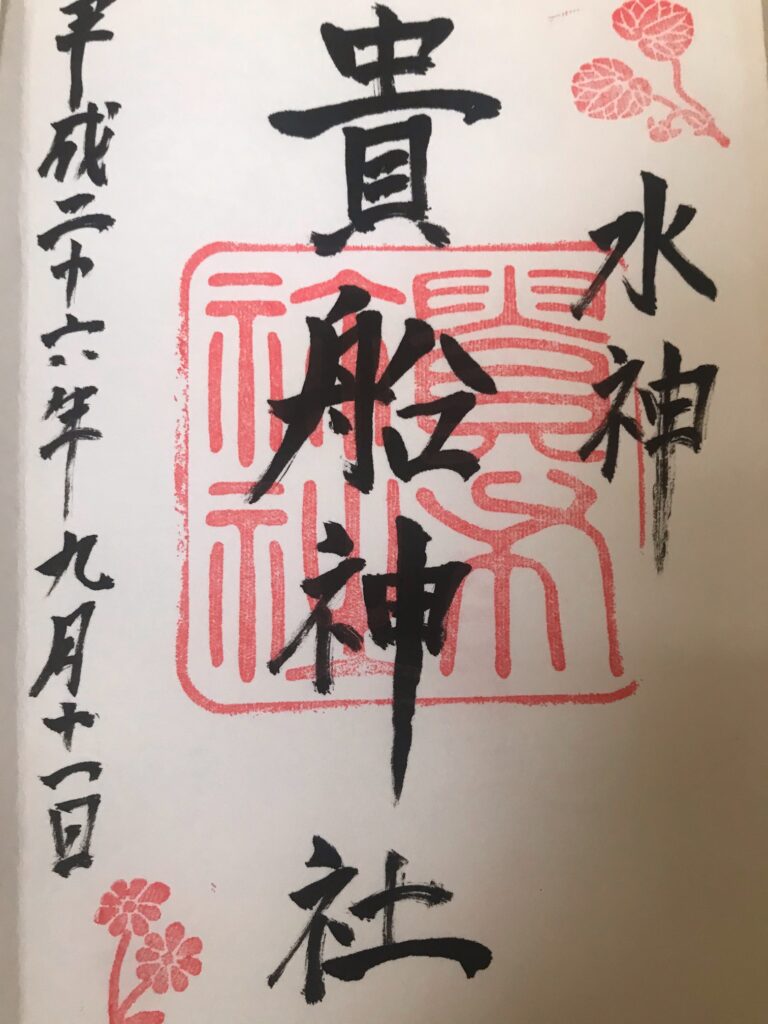 水神
貴船神社
平成二十六年九月十一日